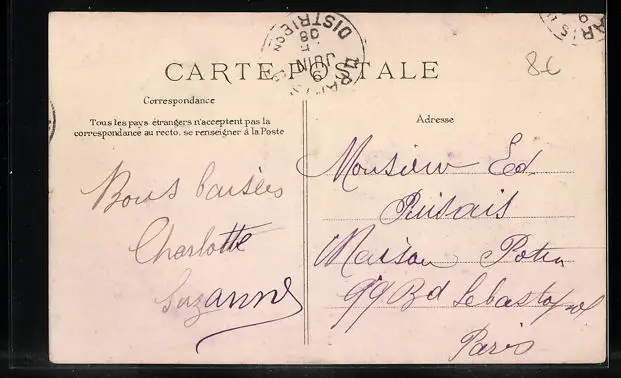 DISTRIBON
08
JUIN
9
PARIS
8 C
CARTE POSTALE
Correspondance
Tous les pays étrangers n'acceptent pas la
correspondance au recto. se renseigner à la Poste
Bons baisers
Charlotte
Suzanne
Adresse
Monsieur Ed.
Puisais
Maison Potin
99 Bd Sebastopol
Paris